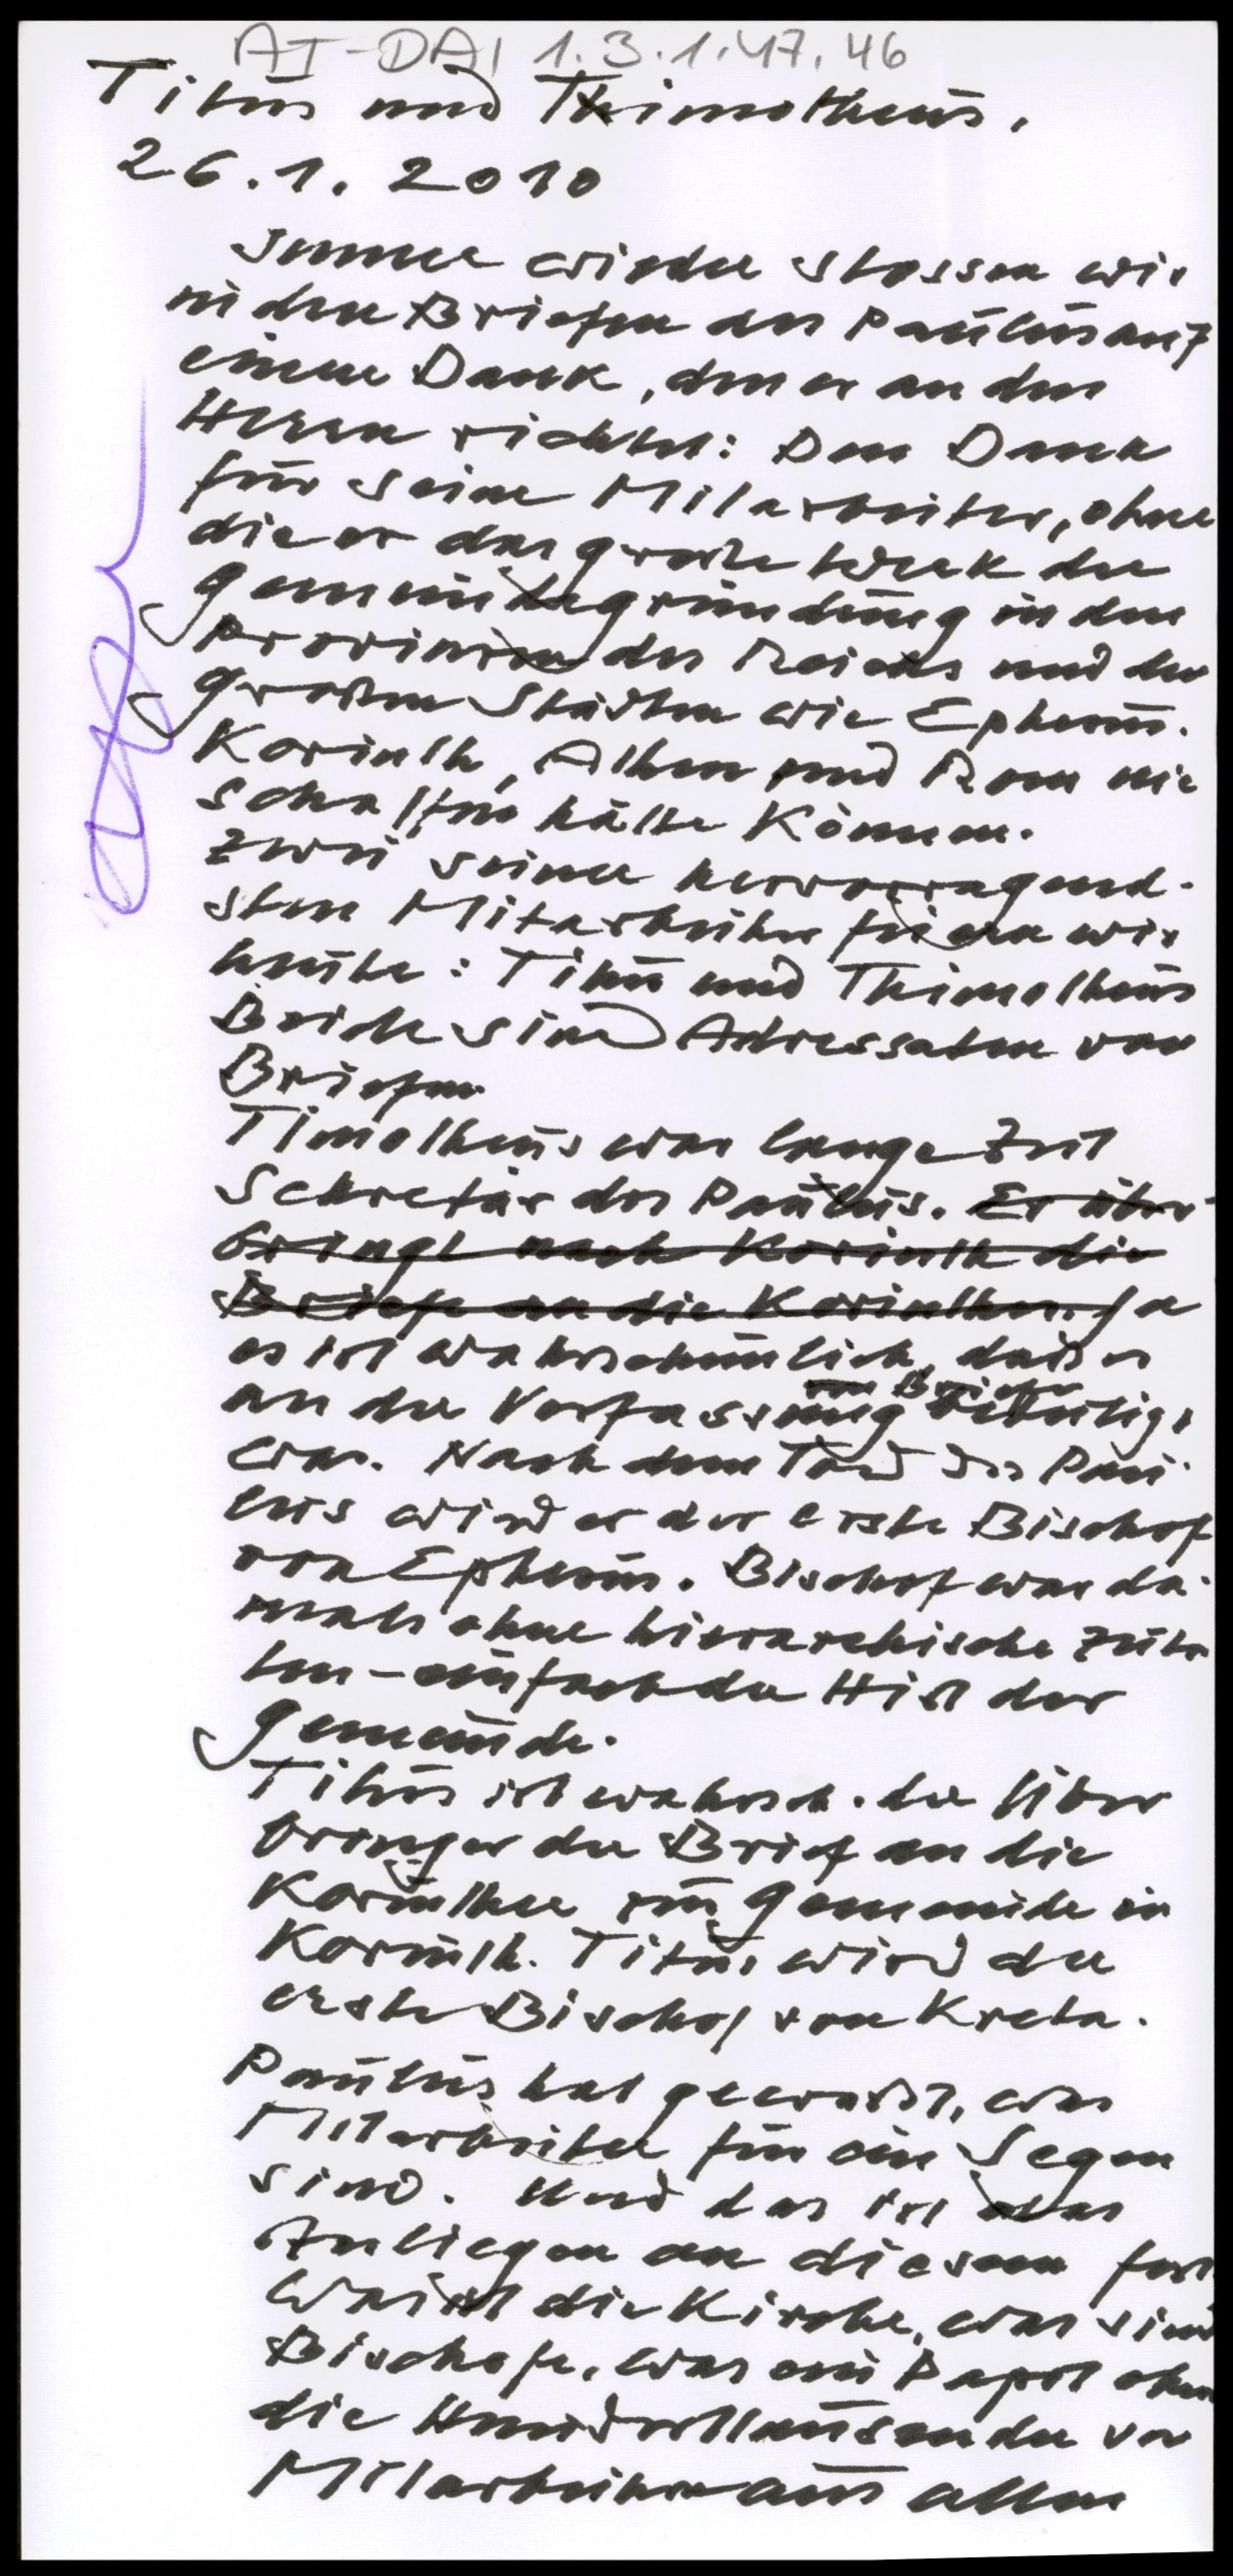 AT-DAI 1.3.1.47.46
Titus und Thimotheus.
26.1.2010
Immer wieder stossen wir
in den Briefen des Paulus auf
einen Dank, den er an den
Herrn richtet: Den Dank
für seine Mitarbeiter, ohne
die er das große Werk der
Gemeindegründung in den
Provinzen des Reichs und den
großen Städten wie Ephesus.
Korinth, Athen und Rom nie
schaffen hätte können.
Zwei seiner hervorragend-
sten Mitarbeiter feiern wir
heute: Titus und Thimotheus
Beide sind Adressaten von
Briefen
Timotheus war lange Zeit
Sekretär des Paulus. Er über-
bringt nach Korinth die
Briefe an die Korinther. Ja
es ist wahrscheinlich, daß er
an der Verfassung von Briefen beteiligt
war. Nach dem Tod des Pau-
lus wird er der erste Bischof
von Ephesus. Bischof war da-
mals ohne hierarchische Zuta-
ten - einfach der Hirt der
Gemeinde.
Titus ist wahrsch. der Über
bringer der Brief an die
Korinther zur Gemeinde in
Korinth. Titus wird der
erste Bischof von Kreta.
Paulus hat gewußt, was
Mitarbeiter für ein Segen
sind. Und das ist das
Anliegen an diesem Fest
Was ist die Kirche, was sind
Bischöfe, was ein Papst ohne
die Hunderttausende von
Mitarbeitern aus allen